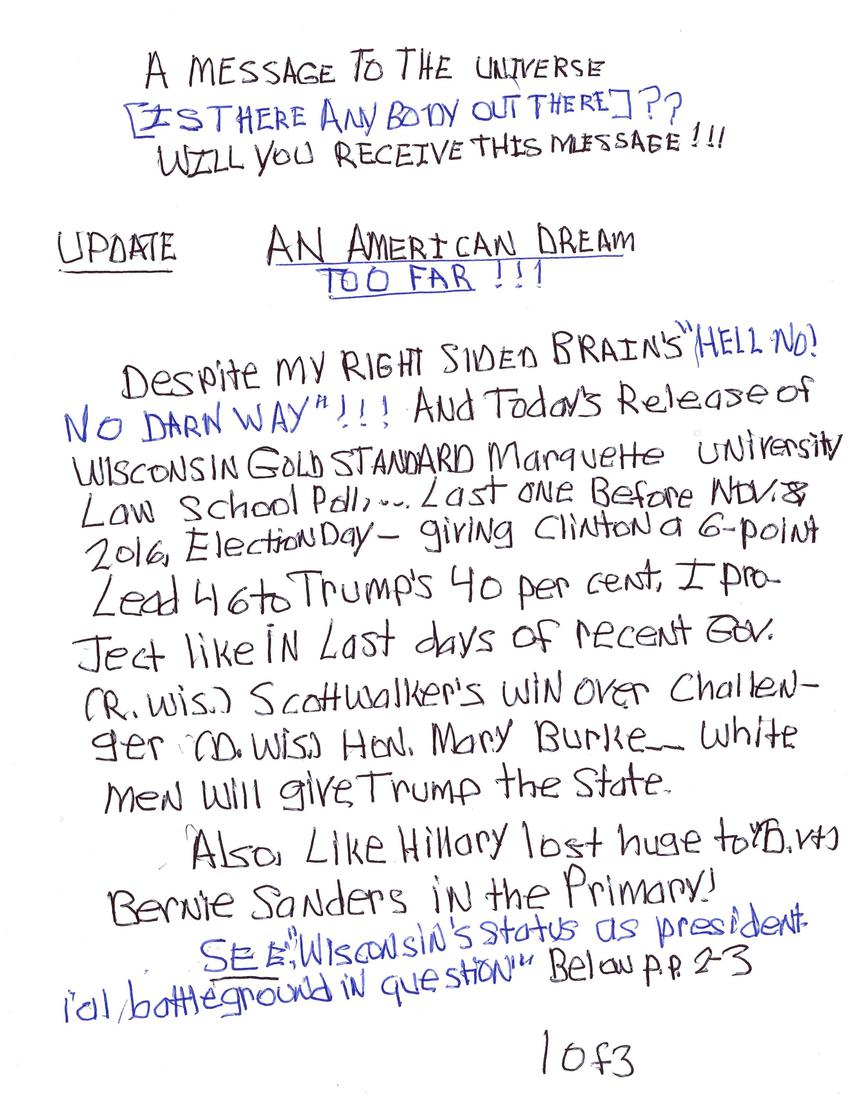 A MESSAGE TO THE UNIVERSE
[IS THERE ANY BODY OUT THERE]??
WILL YOU RECEIVE THIS MESSAGE!!!
UPDATE AN AMERICAN DREAM
TOO FAR !!!
Despite MY RIGHT SIDED BRAIN'S "HELL NO!
NO DARN WAY"!!! And Today's Release of
WISCONSIN GOLD STANDARD Marquette UNiversity
Law School Poll,... Last ONE Before Nov. 8
2016, Election Day- giving Clinton a 6-point
Lead 46 to Trump's 40 per cent, I pro-
Ject like iN Last days of recent Gov.
(R. Wis.) Scott Walker's WIN over Challen-
ger (D. Wis.) Hon. Mary Burke__ White
men will give Trump the State.
Also, Like Hillary lost huge to (D. Vt)
Bernie Sanders in the Primary!
SEE, "Wisconsin's status as president-
ial battleground in question" Below p.p. 2-3
1 of 3